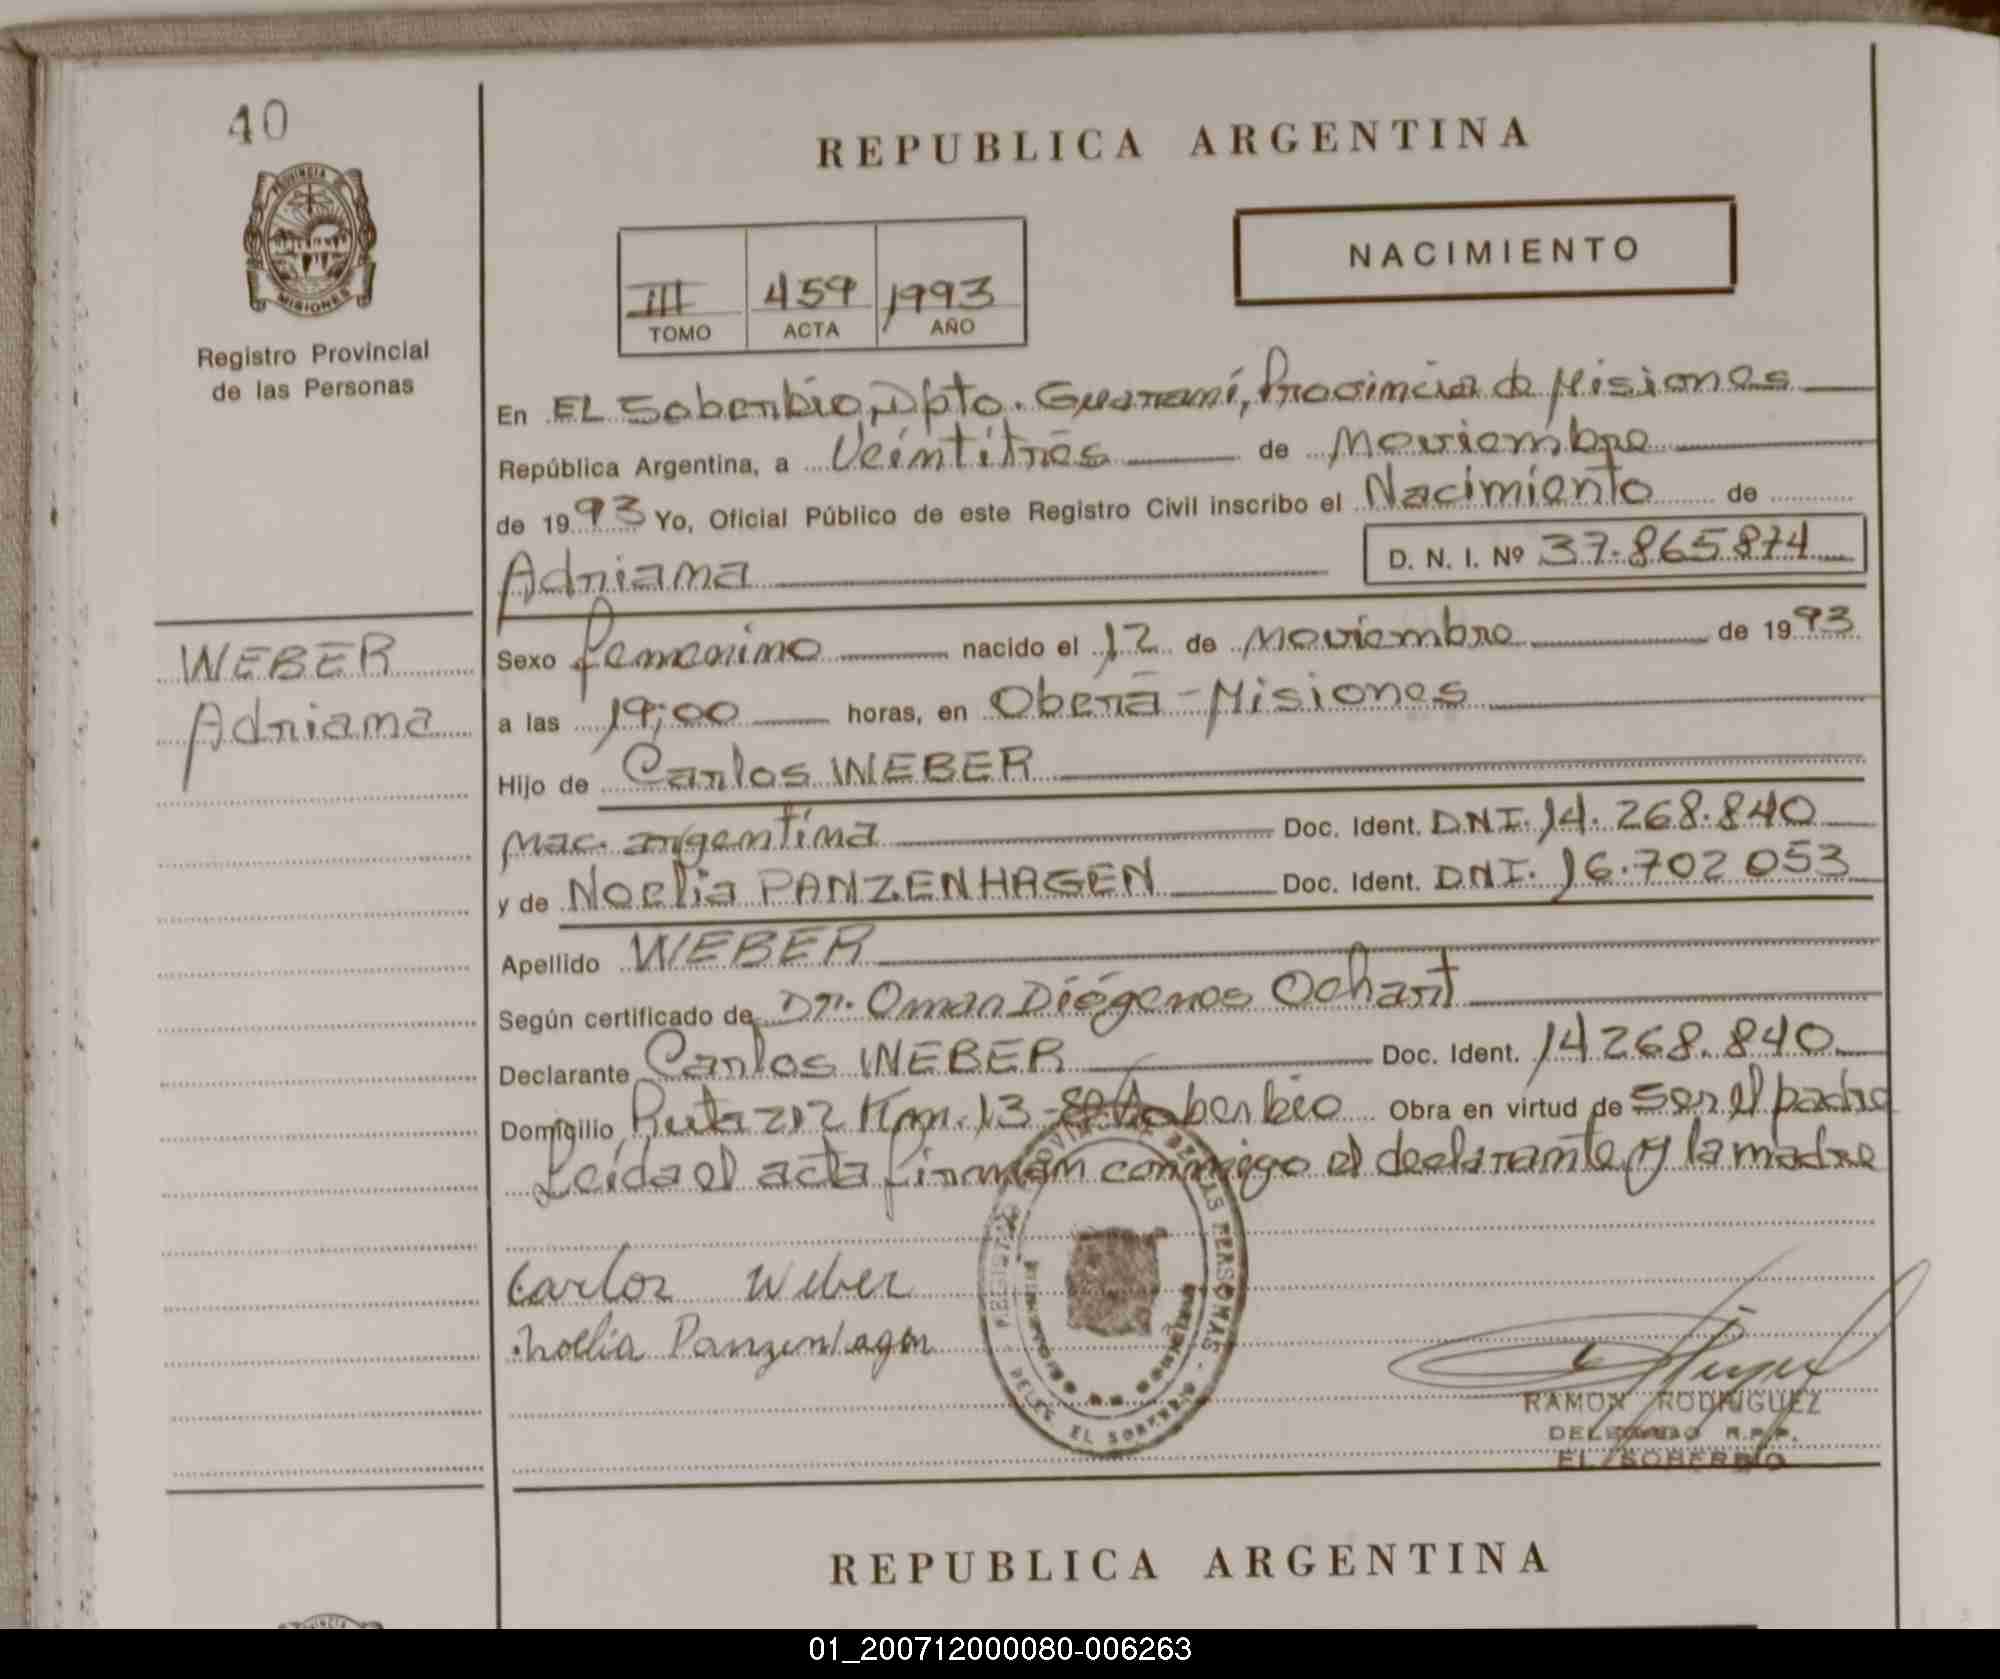 40
PROVINCIA DE
MISIONES
Registro Provincial
de las Personas
REPUBLICA ARGENTINA
NACIMIENTO
III 459 1993
TOMO ACTA AÑO
En EL Soberbio, Dpto. Guaraní, Provincia de Misiones
República Argentina, a Veintitrés de Noviembre
de 1993 Yo, Oficial Público de este Registro Civil inscribo el Nacimiento de
Adriana D. N. I. Nº 37.865874
WEBER
Adriana
Sexo femenino nacido el 12 de noviembre de 1993
a las 19:00 horas, en Oberá - Misiones
Hijo de Carlos WEBER
nac. argentina Doc. Ident. DNI. 14.268.840
y de Noelia PANZENHAGEN Doc. Ident. DNI. 16.702 053
Apellido WEBER
Según certificado de Dr. Omar Diógenes Ochart
Declarante Carlos WEBER Doc. Ident. 14268.840
Domicilio Ruta 212 Km. 13 - El Soberbio Obra en virtud de ser el padre
Leída el acta firman conmigo el declarante y la madre
Carlos Weber
Noelia Panzenhagen
REGISTRO PROVINCIAL DE LAS PERSONAS
DELEG. EL SOBERBIO
RAMON RODRIGUEZ
DELEGADO R.P.P.
EL SOBERBIO
REPUBLICA ARGENTINA
01_200712000080-006263